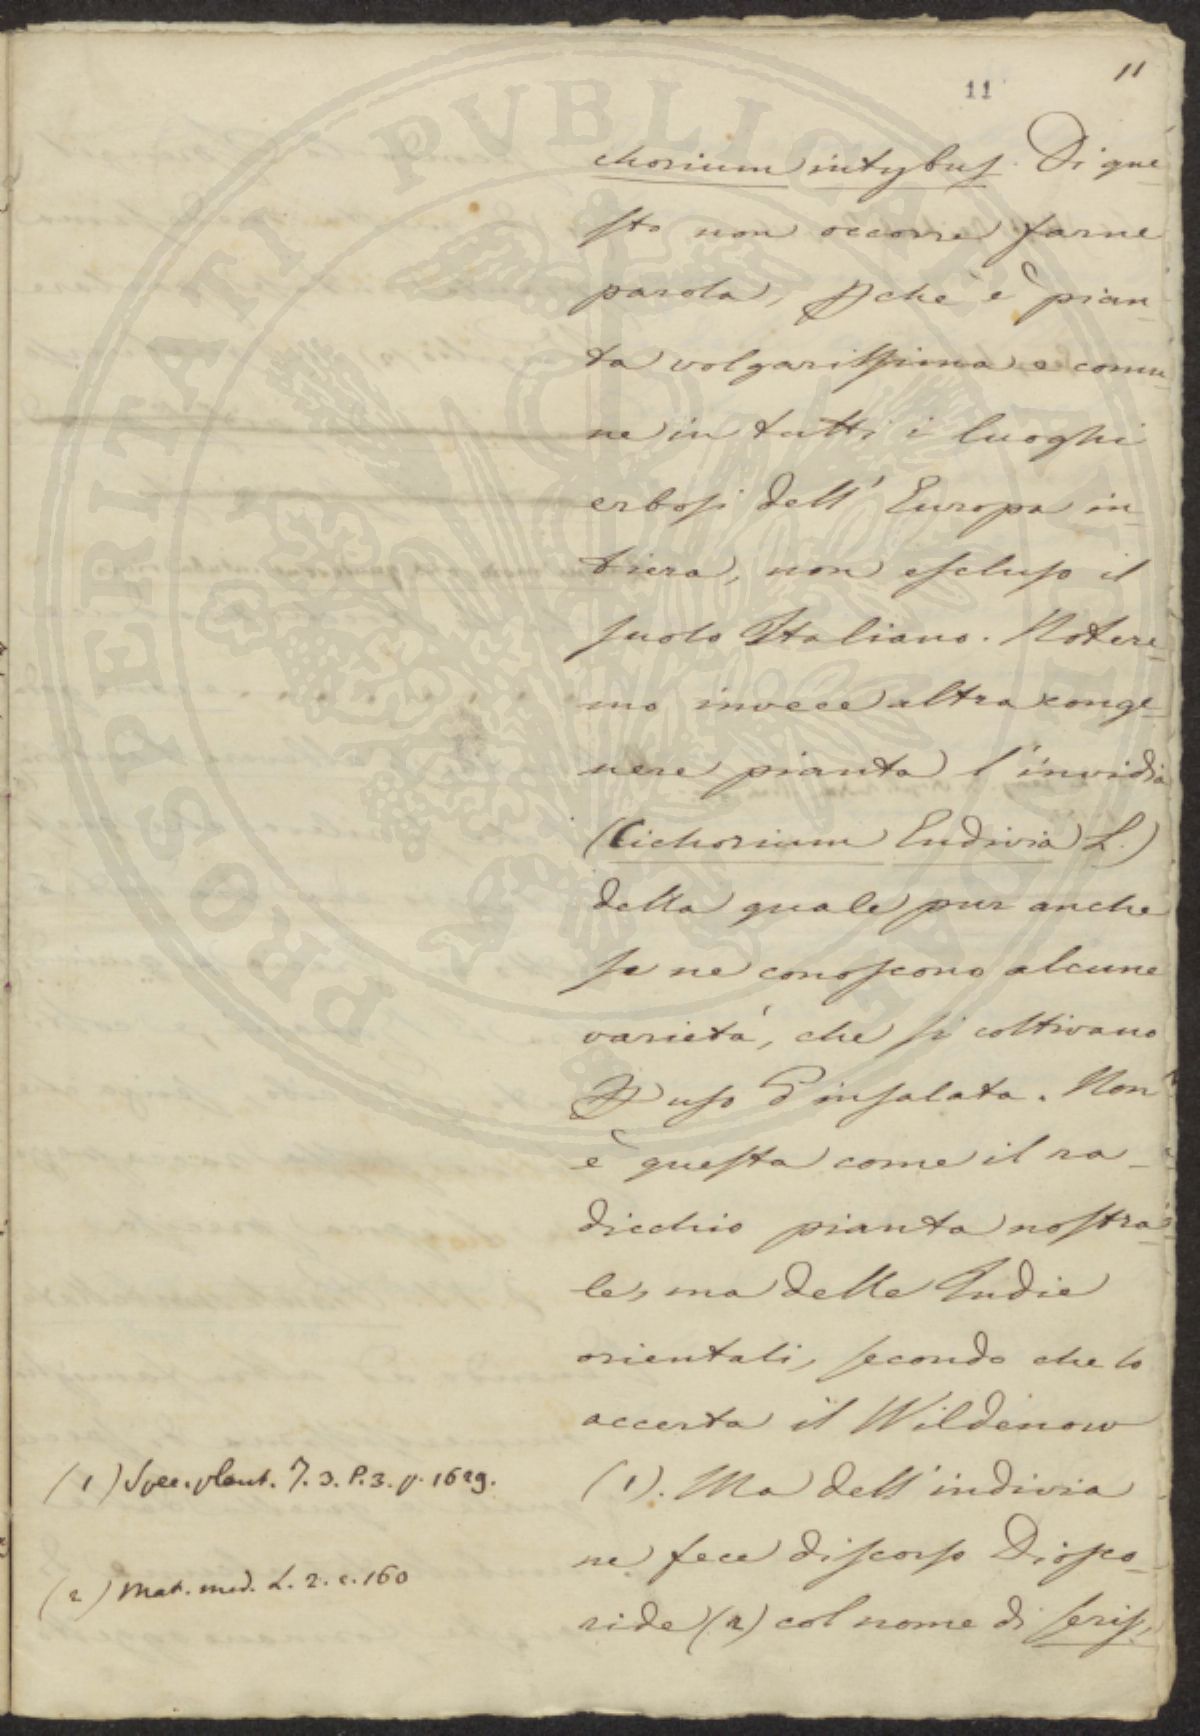 11
11
chorium intybus. Di que-
sto non occorre farne
parola, pche è pian-
ta volgarissima e comu-
ne in tutti i luoghi
erbosi dell' Europa in-
tiera, non escluso il
suolo Italiano. Notere-
mo invece altra conge-
nere pianta l'invidia
(Cichorium Endivia L.)
della quale pur anche
se ne conoscono alcune
varietà, che si coltivano
p uso d'insalata. Non
è questa come il ra-
dicchio pianta nostra-
le, ma delle Indie
orientali, secondo che lo
accerta il Wildenow
(1). Ma dell'indivia
ne fece discorso Diosco-
ride (2) col nome di seris,
(1) Spec. plant. T. 3. P. 3. p. 1629.
(2) Mat. med. L. 2. c. 160
PROSPERITATI PVBLICAE